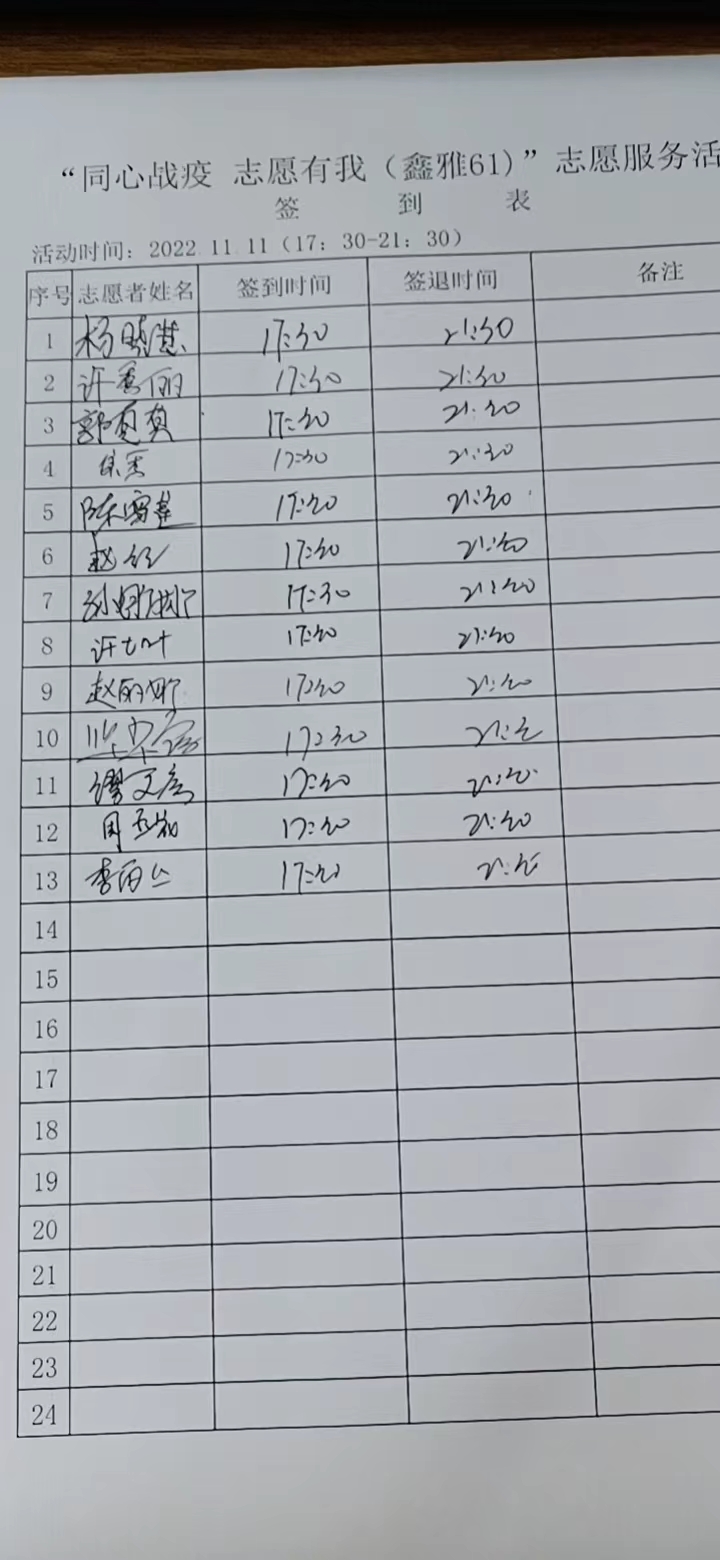 “同心战疫 志愿有我（鑫雅61）”志愿服务活
签 到 表
活动时间：2022.11.11（17：30-21：30）
序号 志愿者姓名 签到时间 签退时间 备注
1 杨晓慧 17:30 21:30
2 许秀丽 17:30 21:30
3 郭夏 17:30 21:30
4 17:30 21:30
5 陈雪莲 17:30 21:30
6 赵红 17:30 21:30
7 孙娜娜 17:30 21:30
8 许 17:30 21:30
9 赵丽娜 17:30 21:30
10 17:30 21:30
11 缪文彦 17:30 21:30
12 周 17:30 21:30
13 李 17:30 21:30
14
15
16
17
18
19
20
21
22
23
24